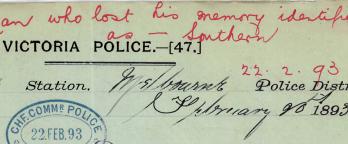 an who lost his memory identifie
as — Southern
VICTORIA POLICE.—[47.]
22. 2. 93
Station. Melbourne Police Distr
February 1893
CHF. COMMR. POLICE
22.FEB.93